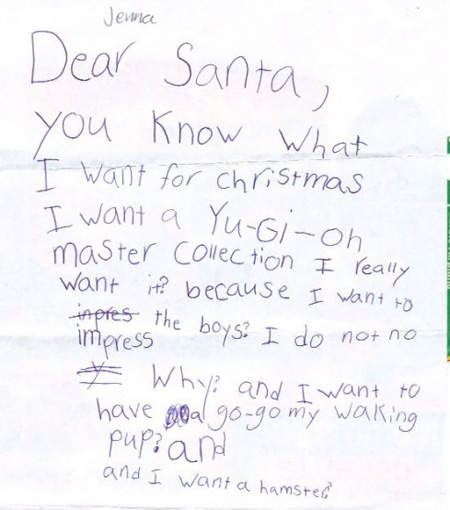 Jenna
Dear Santa,
you Know What
I want for christmas
I want a Yu-Gi-Oh
master collection I really
want it? because I want to
inpres the boys? I do not no
impress
Why? and I want to
have a go-go my waking
pup? and
and I want a hamster?